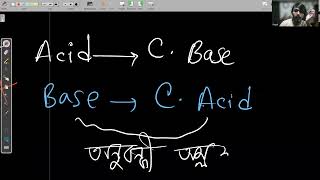 Acid → C. Base
Base → C. Acid
অনুবন্ধী অম্ল